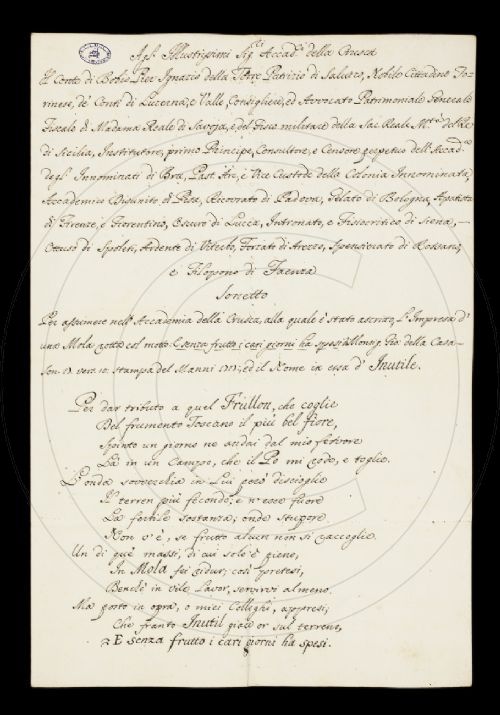 Agl' Illustrissimi Sig.ri Accad.ci della Crusca
Il Conte di Bobio Pier Ignazio della Torre Patrizio di Saluzzo, Nobile Cittadino To-
rinese, de' Conti di Lucerna, e Valle Consigliere, ed Avvocato Patrimoniale Generale
Fiscale di Madama Reale di Savoja, e del Fisco militare della Sac. Reale M.tà del Re
di Sicilia, Institutore, primo Principe, Consultore, e Censore perpetuo dell' Accad.
degl' Innominati di Bra, Past. Arc. e Vice Custode della Colonia Innominata,
Accademico Disunito di Pisa, Ricovrato di Padova, Gelato di Bologna, Apatista
di Firenze, e Fiorentino, Oscuro di Lucca, Intronato, e Fisiocritico di Siena, —
Ottuso di Spoleti, Ardente di Viterbo, Forzato di Arezzo, Spensierato di Rossano,
e Filopono di Faenza
Sonetto
Per assumere nell' Accademia della Crusca, alla quale è stato ascritto, l'Impresa d'
una Mola rotta col motto: E senza frutto i cari giorni ha spesi Monsig. Gio: della Casa
Son. 13. vers. 10. stampa del Manni 1713; ed il Nome in essa d' Inutile.
Per dar tributo a quel Frullon, che coglie
Del frumento Toscano il più bel fiore,
Spinto un giorno ne andai dal mio fervore
Là in un Campo, che il Po mi rode, e toglie.
L' onda soverchia in Lui però discioglie
Il terren più fecondo; e n' esce fuore
La fertile sostanza; onde stupore
Non v' è, se frutto alcun non si raccoglie.
Un di que' massi, di cui solo è pieno,
In Mola fei ridur; così pretesi,
Benchè in vile Lavor, servirvi almeno.
Ma posto in opra, o miei Colleghi, appresi;
Che franto Inutil giace or sul terreno,
E senza frutto i cari giorni ha spesi.